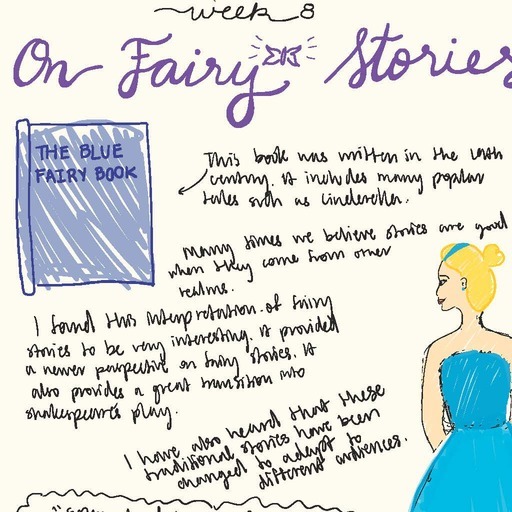 week 8
On Fairy Stories
THE BLUE
FAIRY BOOK
This book was written in the 19th
century. It includes many popular
tales such as Cinderella.
many times we believe stories are good
when they come from other
realms.
I found this interpretation of fairy
stories to be very interesting. It provided
a newer perspective on fairy stories. It
also provides a great transition into
shakespeare's play.
I have also heard that these
traditional stories have been
changed to adapt to
different audiences.